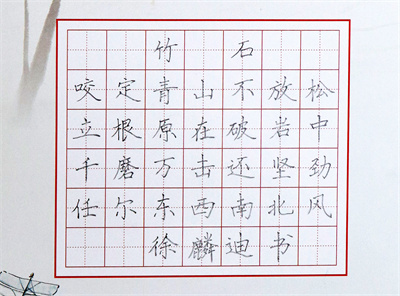 竹石
咬定青山不放松
立根原在破岩中
千磨万击还坚劲
任尔东西南北风
徐麟迪书